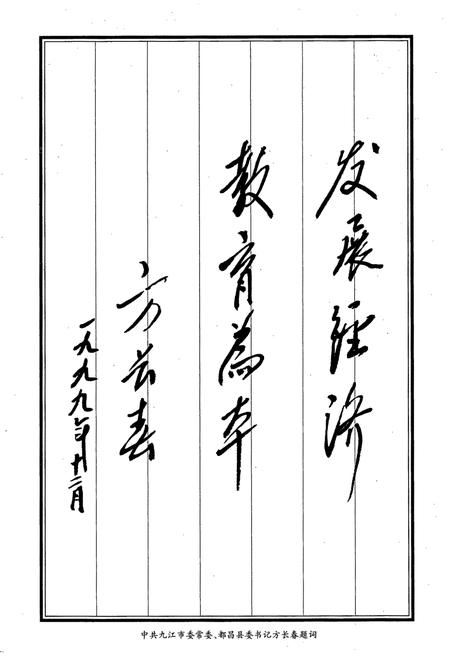 发展经济
教育为本
方长春
一九九九年十二月
中共九江市委常委、都昌县委书记方长春题词